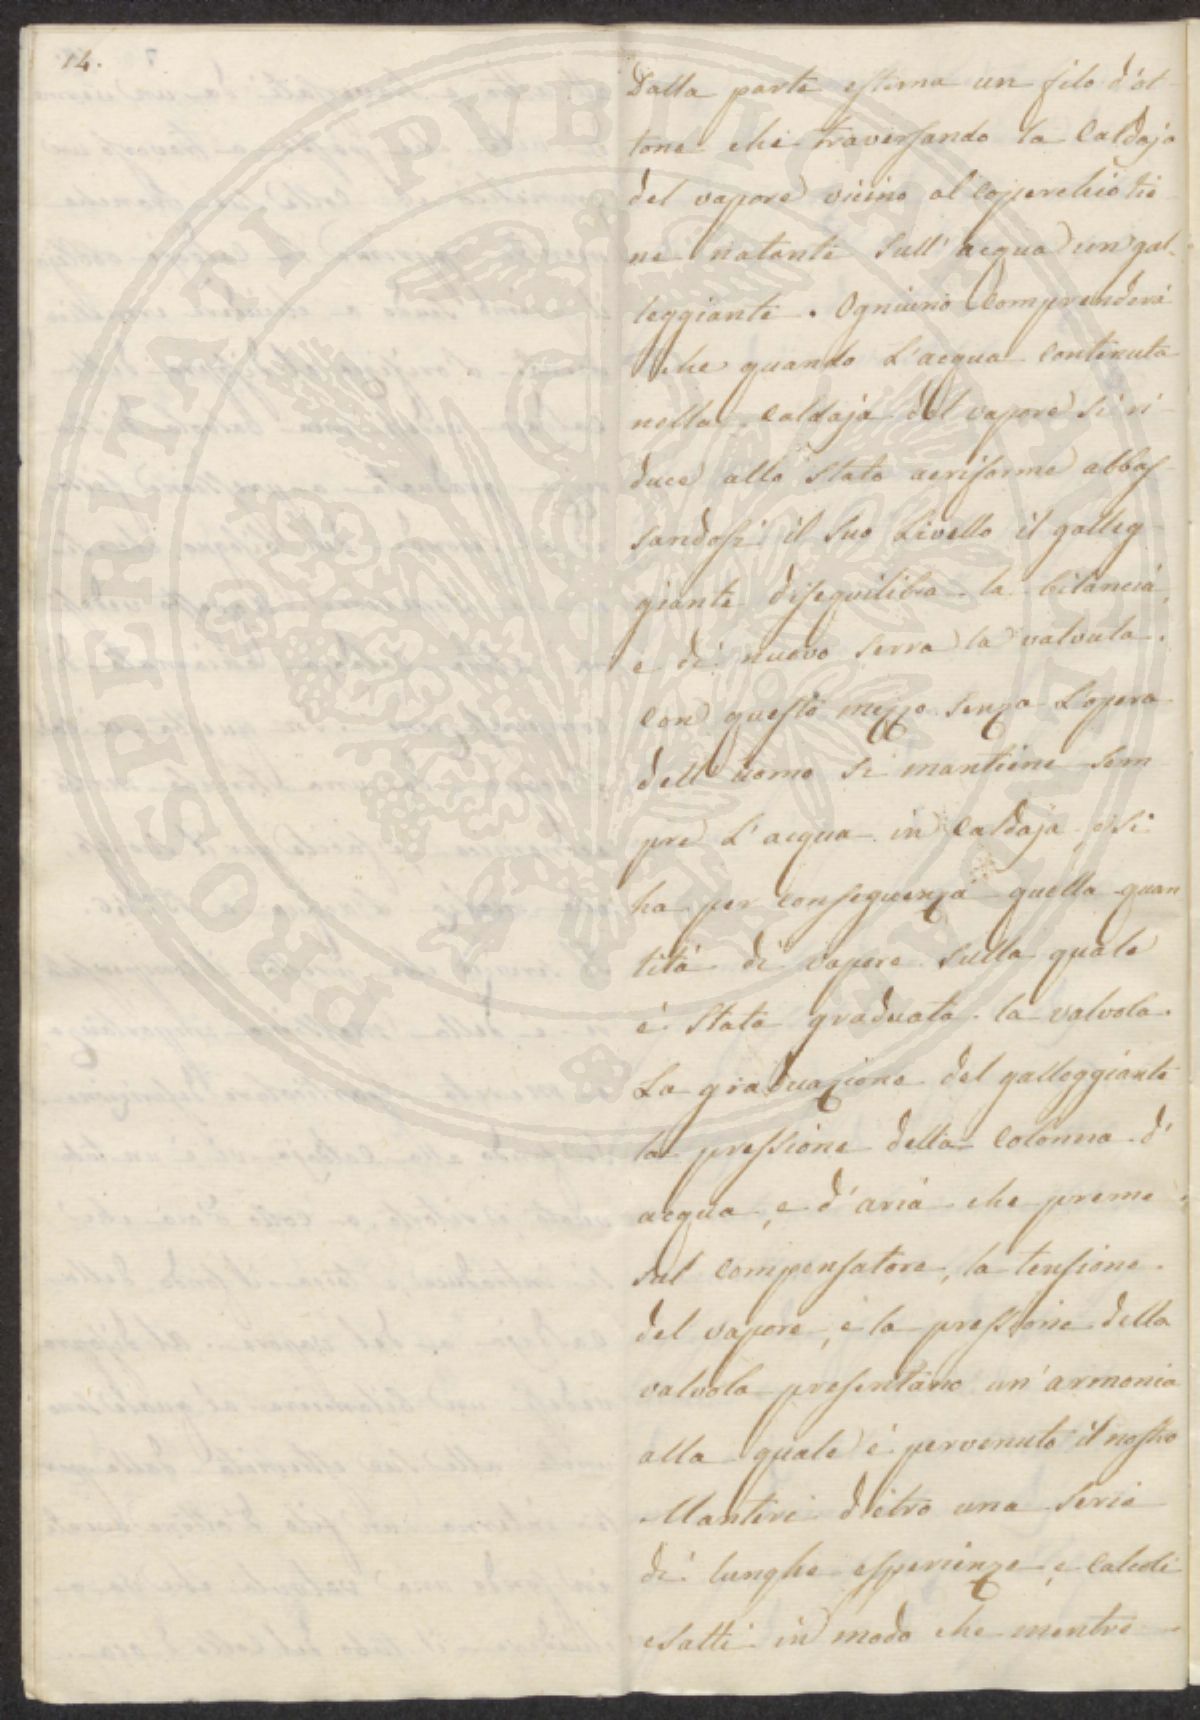 14.
Dalla parte esterna un filo d'ot-
tone che traversando la Caldaja
del vapore vicino al coperchio tie-
ne natante sull'acqua un gal-
leggiante. Ogniuno comprenderà
che quando L'acqua contenuta
nella Caldaja del vapore si ri-
duce allo stato aeriforme abbas-
sandosi il suo Livello il galleg-
giante disequilibra la bilancia,
e di nuovo serra la valvula.
Con questo mezzo senza L'opera
dell'uomo si mantiene sem-
pre L'acqua in Caldaja, e si
ha per conseguenza quella quan
tità di vapore sulla quale
è stata graduata la valvola.
La graduazione del galleggiante
la pressione della Colonna d'
acqua, e d'aria che preme
sul Compensatore, la tensione
del vapore, e la pressione della
valvola presentano un'armonia
alla quale è pervenuto il nostro
Mantivi dietro una serie
di lunghe esperienze, e Calcoli
esatti in modo che mentre
PROSPERITATI PUBLICAE AUGENDAE